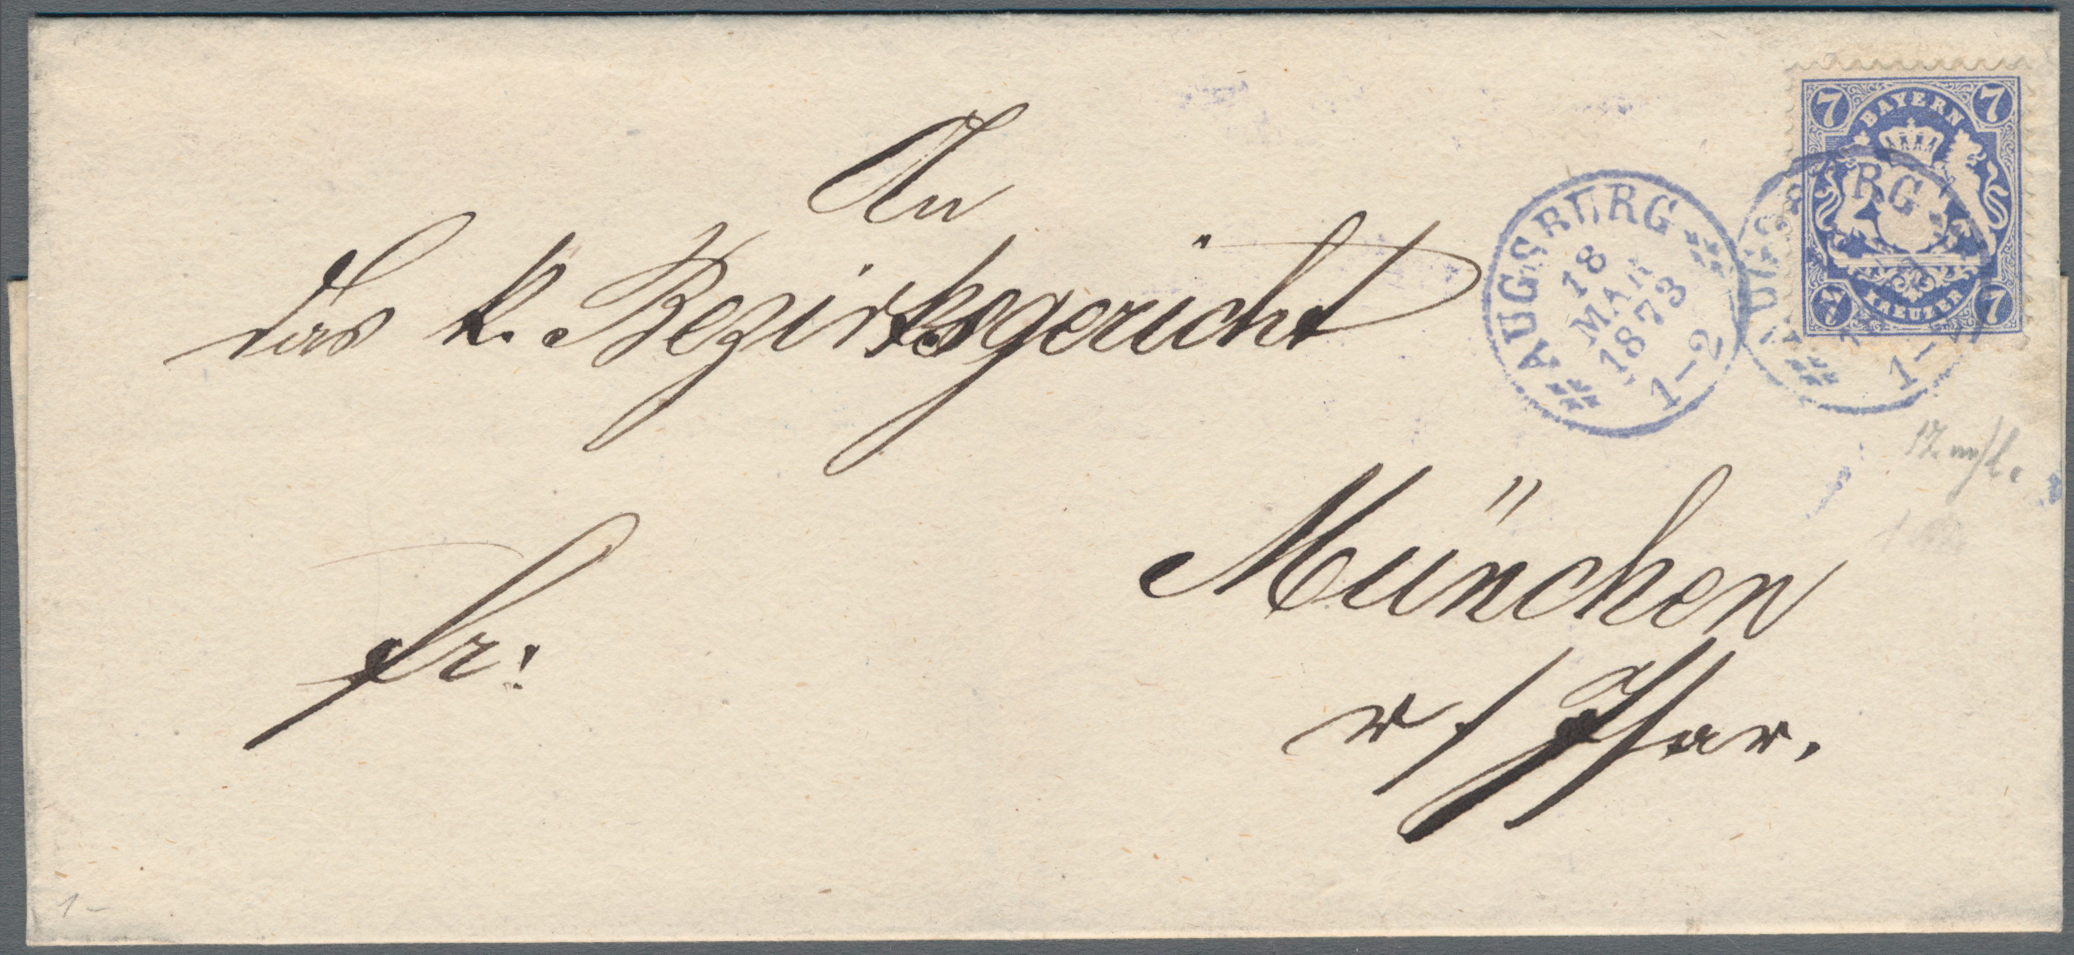 An
das k. Bezirksgericht
München
r/Isar.
fr:
AUGSBURG
18
MAR
1873
1-2
7 BAYERN 7
7 KREUZER 7
RG
1-2
1-